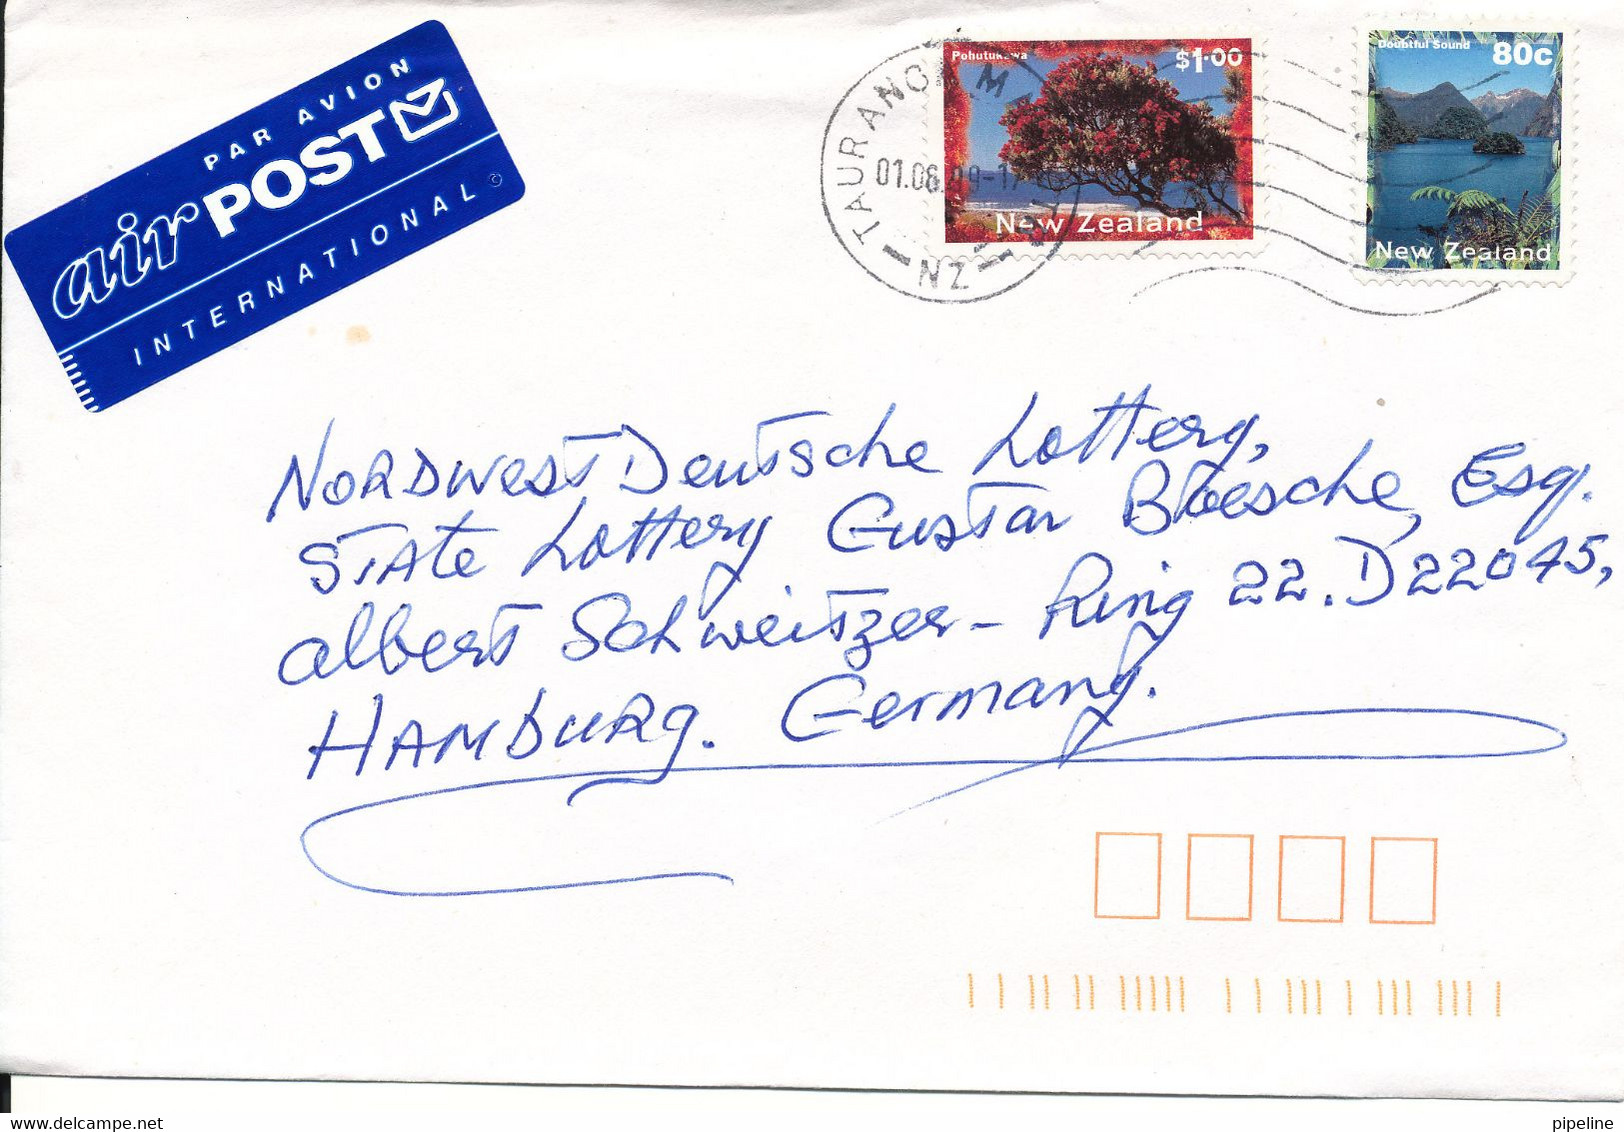 PAR AVION
air POST
INTERNATIONAL ©
Pohutukawa $1.00
New Zealand
Doubtful Sound 80c
New Zealand
NZ
NORDWEST Deutsche Lottery,
STATE Lottery Gustav Bloesche, Esq.
Albert Schweitzer - Ring 22. D22045,
HAMBURG. Germany.
pipeline